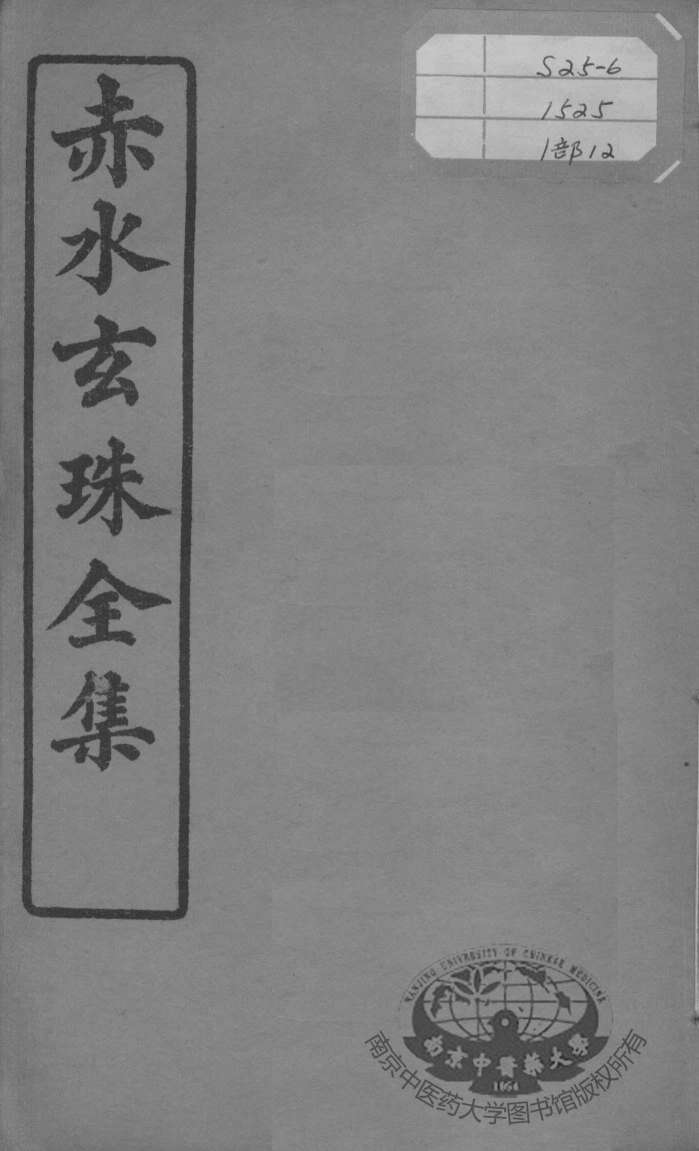 赤水玄珠全集
S25-6
1525
1部12
NANJING UNIVERSITY OF CHINESE MEDICINE
南京中醫藥大學
1954
南京中医药大学图书馆版权所有